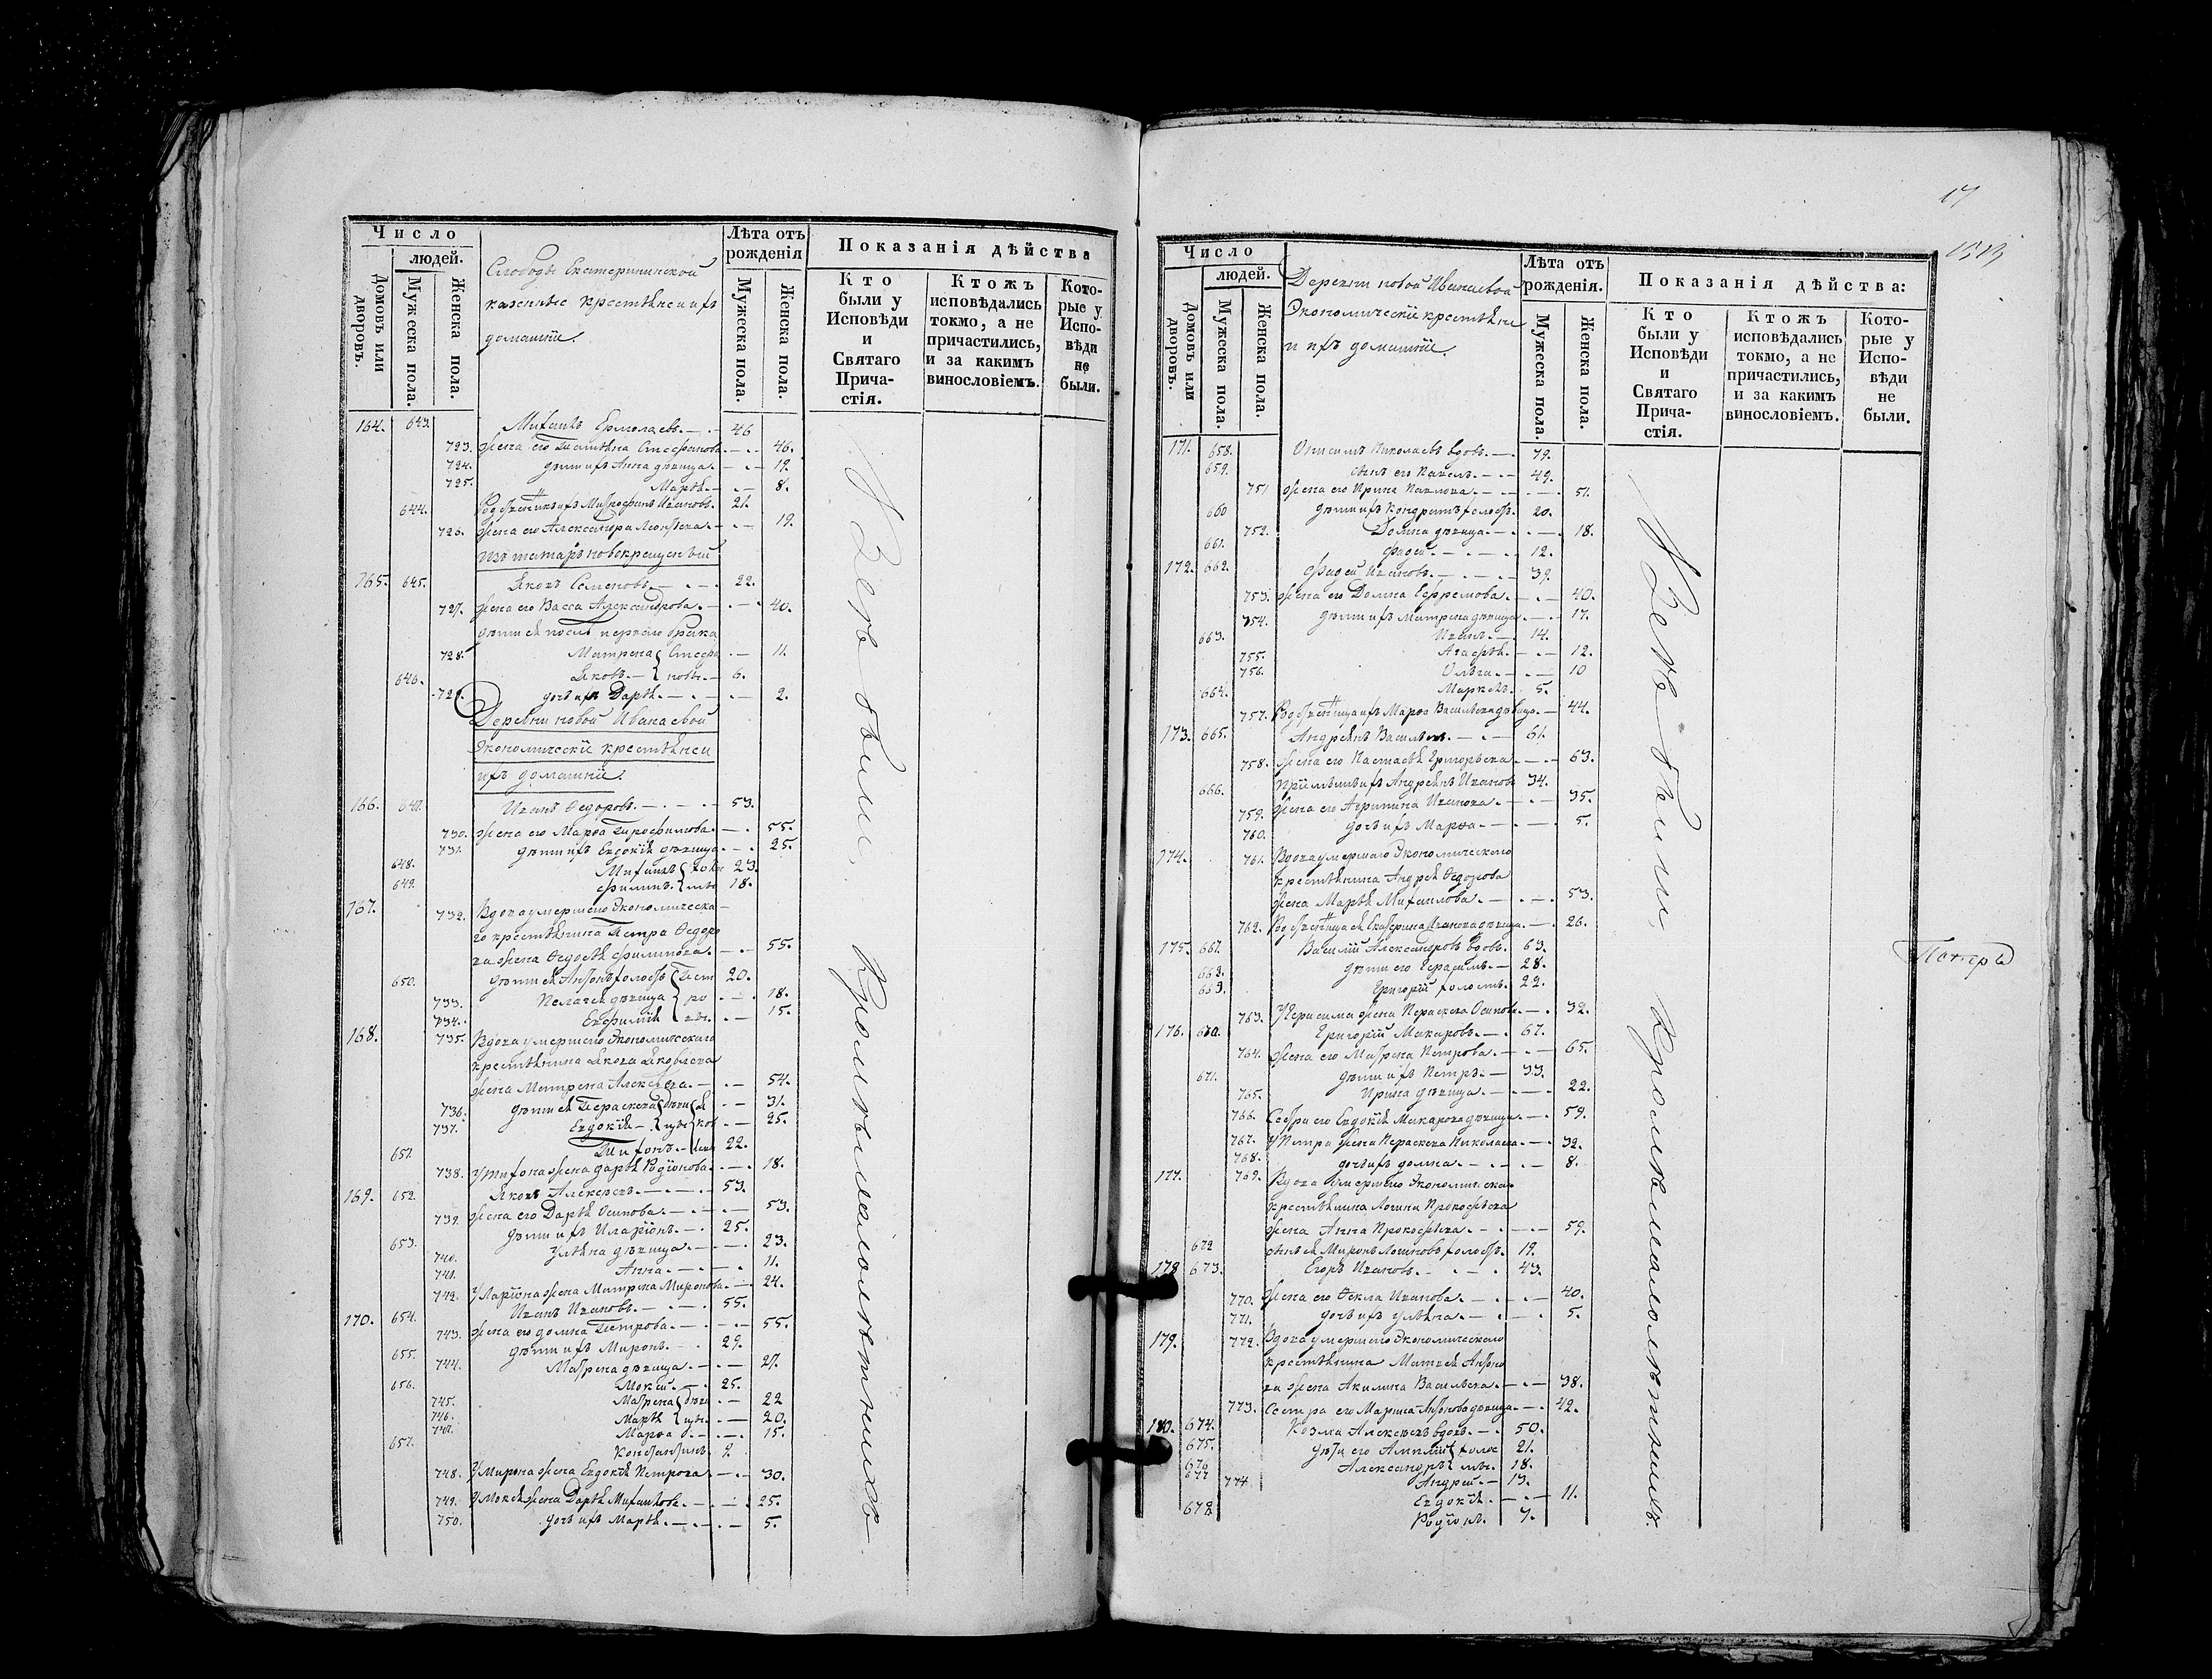 Число
людей.
Домовъ или дворовъ.
Мужеска пола.
Женска пола.
Слободы Екатерининской
казенные крестьяне и ихъ
домашніе.
Лѣта отъ рожденія
Мужеска пола.
Женска пола.
Показанія дѣйства
Кто были у Исповѣди и Святаго Причастія.
Ктожъ исповѣдались токмо, а не причастились, и за какимъ винословіемъ.
Которые у Исповѣди не были.
164. 643. Михаилъ Ермолаевъ. 46
723. жена его Татьяна Стефанова. 46.
724. дѣти ихъ Анна дѣвица. 19.
725. Марья. 8.
644. Родственникъ ихъ Митрофанъ Ивановъ. 21.
726. жена его Александра Леонтьева. 19.
Изъ татаръ новокрещеный
165. 645. Яковъ Семеновъ. 22.
727. жена его Васса Александрова. 40.
дѣти ея послѣ перваго брака
728. Матрена Стефа 11.
646. Яковъ новы. 6.
729. дочь ихъ Дарья. 2.
Деревни новой Иванаевой
Экономическіе крестьяне и
ихъ домашніе.
166. 647. Иванъ Ѳедоровъ. 53.
730. жена его Марѳа Трофимова. 55.
731. дѣти ихъ Евдокія дѣвица. 25.
648. Михаилъ холос 23.
649. Филипъ. тые 18.
167. 732. Вдова умершаго Экономическа-
го крестьянина Петра Ѳедоро
ва жена Ѳедосья Филипова. 55.
650. дѣти ея Антонъ холостъ Пет 20.
733. Пелагея дѣвица ро 18.
734. Евфимія вы. 15.
168. 735. Вдова умершаго Экономическаго
крестьянина Якова Яковлева
жена Матрена Алексѣева. 54.
736. дѣти ея Параскева дѣви Я 31.
737. Евдокія цы ков 25.
651. Тихонъ. левы 22.
738. У Тихона жена Дарья Родіонова. 18.
169. 652. Яковъ Алексѣевъ. 53.
739. жена его Дарья Осипова. 53.
653. дѣти ихъ Иларіонъ. 25.
740. Ульяна дѣвица. 23.
741. Анна. 11.
742. У Ларіона жена Матрена Миронова. 24.
170. 654. Иванъ Ивановъ. 55.
743. жена его Домна Петрова. 55.
655. дѣти ихъ Миронъ. 29.
744. Матрена дѣвица. 27.
656. Мокей. 25.
745. Матрена дѣви 22
746. Марья цы. 20.
747. Марѳа 15.
657. Константинъ. 2.
748. У Мирона жена Евдокія Петрова. 30.
749. У Мокея жена Дарья Михайлова. 25.
750. дочь ихъ Марья. 5.
Всѣ были, кромѣ малолѣтнихъ
17
1513
Число
людей.
Домовъ или дворовъ.
Мужеска пола.
Женска пола.
Деревни новой Иванаевой
Экономическіе крестьяне
и ихъ домашніе.
Лѣта отъ рожденія.
Мужеска пола.
Женска пола.
Показанія дѣйства:
Кто были у Исповѣди и Святаго Причастія.
Ктожъ исповѣдались токмо, а не причастились, и за какимъ винословіемъ.
Которые у Исповѣди не были.
171. 658. Онисимъ Николаевъ вдовъ. 79.
659. сынъ его Павелъ. 49.
751 жена его Ирина Павлова. 51.
660 дѣти ихъ Кондратъ холостъ. 20.
752. Домна дѣвица. 18.
661. Фадей. 12.
172. 662. Фадей Ивановъ. 39.
753. жена его Домна Ефремова. 40.
754. дѣти ихъ Матрена дѣвица. 17.
663. Иванъ. 14.
755. Агафья. 12.
756. Ольга. 10
664. Маркелъ. 5.
757. Родственница ихъ Марѳа Васильева дѣвица. 44.
173. 665. Андреянъ Васильевъ. 61.
758. жена его Настасья Григорьева. 63.
666. Пріемышъ ихъ Андреянъ Ивановъ 34.
759. жена его Агрипина Иванова. 35.
760. дочь ихъ Марѳа. 5.
174. 761. Вдова умершаго Экономическаго
крестьянина Андрея Ѳедорова
жена Марья Михайлова. 53.
762. Родственница ея Екатерина Иванова дѣвица. 26.
175. 667. Василій Александровъ вдовъ. 63.
668. дѣти его Герасимъ. 28.
669. Григорій холостъ. 22.
763. У Герасима жена Параскева Осипова. 32.
176. 670. Григорій Макаровъ. 67.
764. жена его Матрена Петрова. 65.
671. дѣти ихъ Петръ. 33.
765. Ирина дѣвица. 22.
766. Сестра его Евдокія Макарова дѣвица. 59.
767. У Петра жена Параскева Николаева. 32.
768. дочь ихъ Домна. 8.
177. 769. Вдова умершаго Экономическаго
крестьянина Логина Прокофьева
жена Анна Прокофьева. 59.
672 сынъ ея Миронъ Логиновъ холостъ. 19.
178 673. Егоръ Ивановъ. 43.
770. жена его Ѳекла Иванова. 40.
771. дочь ихъ Ульяна. 5.
179. 772. Вдова умершаго Экономическаго
крестьянина Матвея Антоно
ва жена Акилина Васильева. 38.
773. Сестра его Марина Антонова дѣвица. 42.
180. 674. Козма Алексѣевъ вдовъ. 50.
675. дѣти его холос 21.
676 Александръ ты. 18.
677 Андрей. 13.
774 Евдокія. 11.
678 Родіонъ. 7.
Всѣ были, кромѣ малолѣтнихъ.